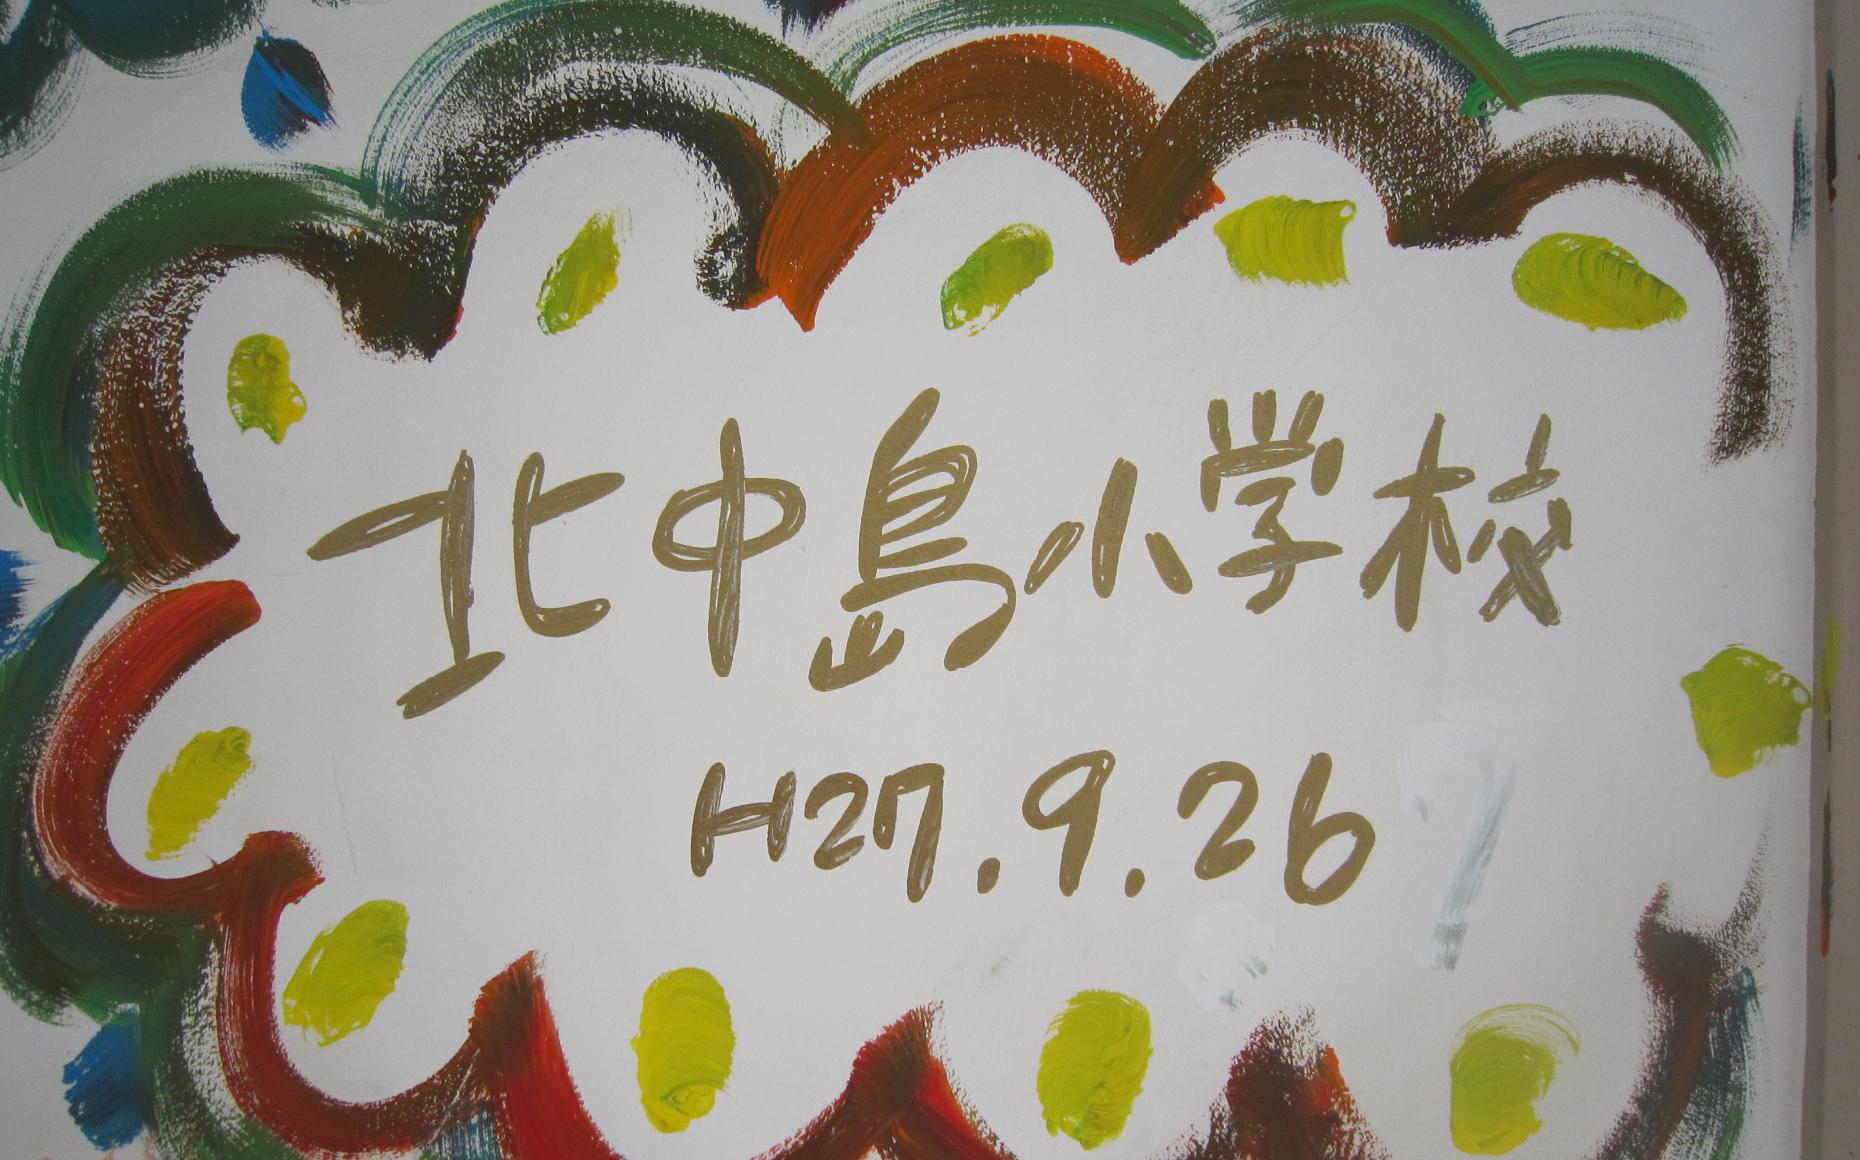 北中島小学校
H27.9.26